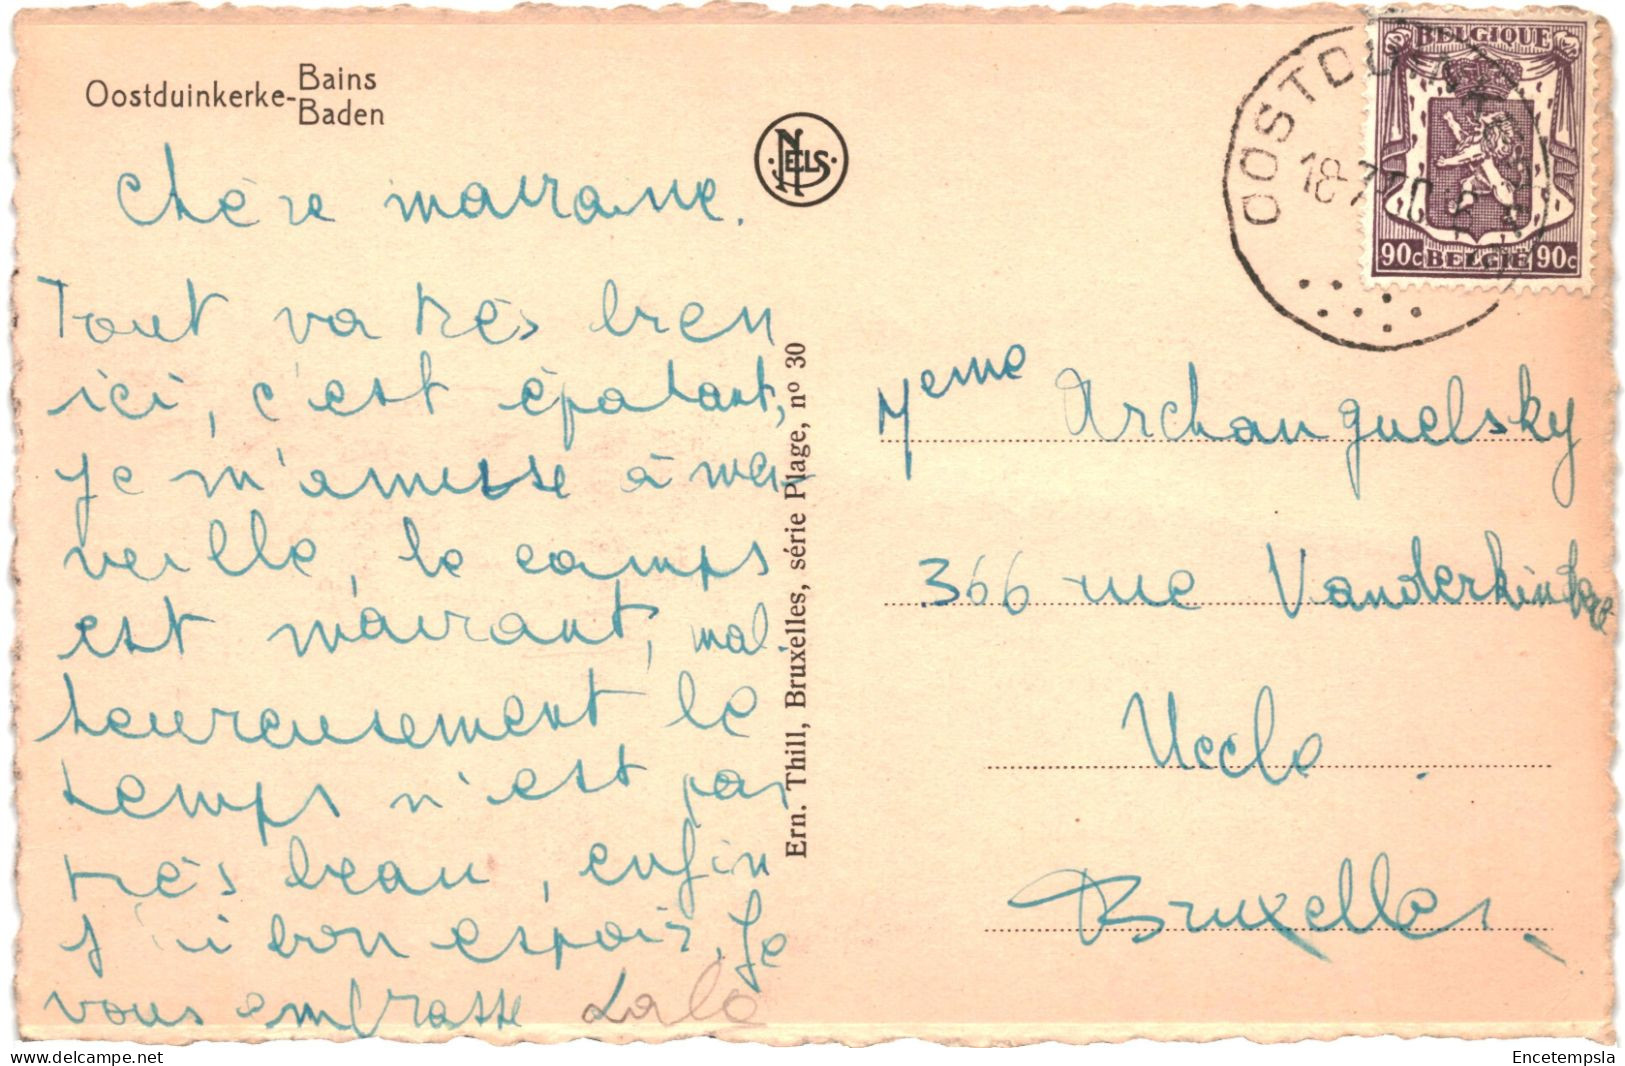 Oostduinkerke-Bains
Baden
NELS
BELGIQUE
90c BELGIE 90c
18-7
chère marraine.
Tout va très bien
ici, c'est épatant,
je m'amuse à mer-
veille, le camps
est marrant, mal-
heureusement le
temps n'est pas
très beau, enfin
j'ai bon espoir. Je
vous embrasse Lalo
Ern. Thill, Bruxelles, série Plage, nº 30
Meme Archanguelsky
366 rue Vanderkindere
Uccle.
Bruxelles.
Encetempsla